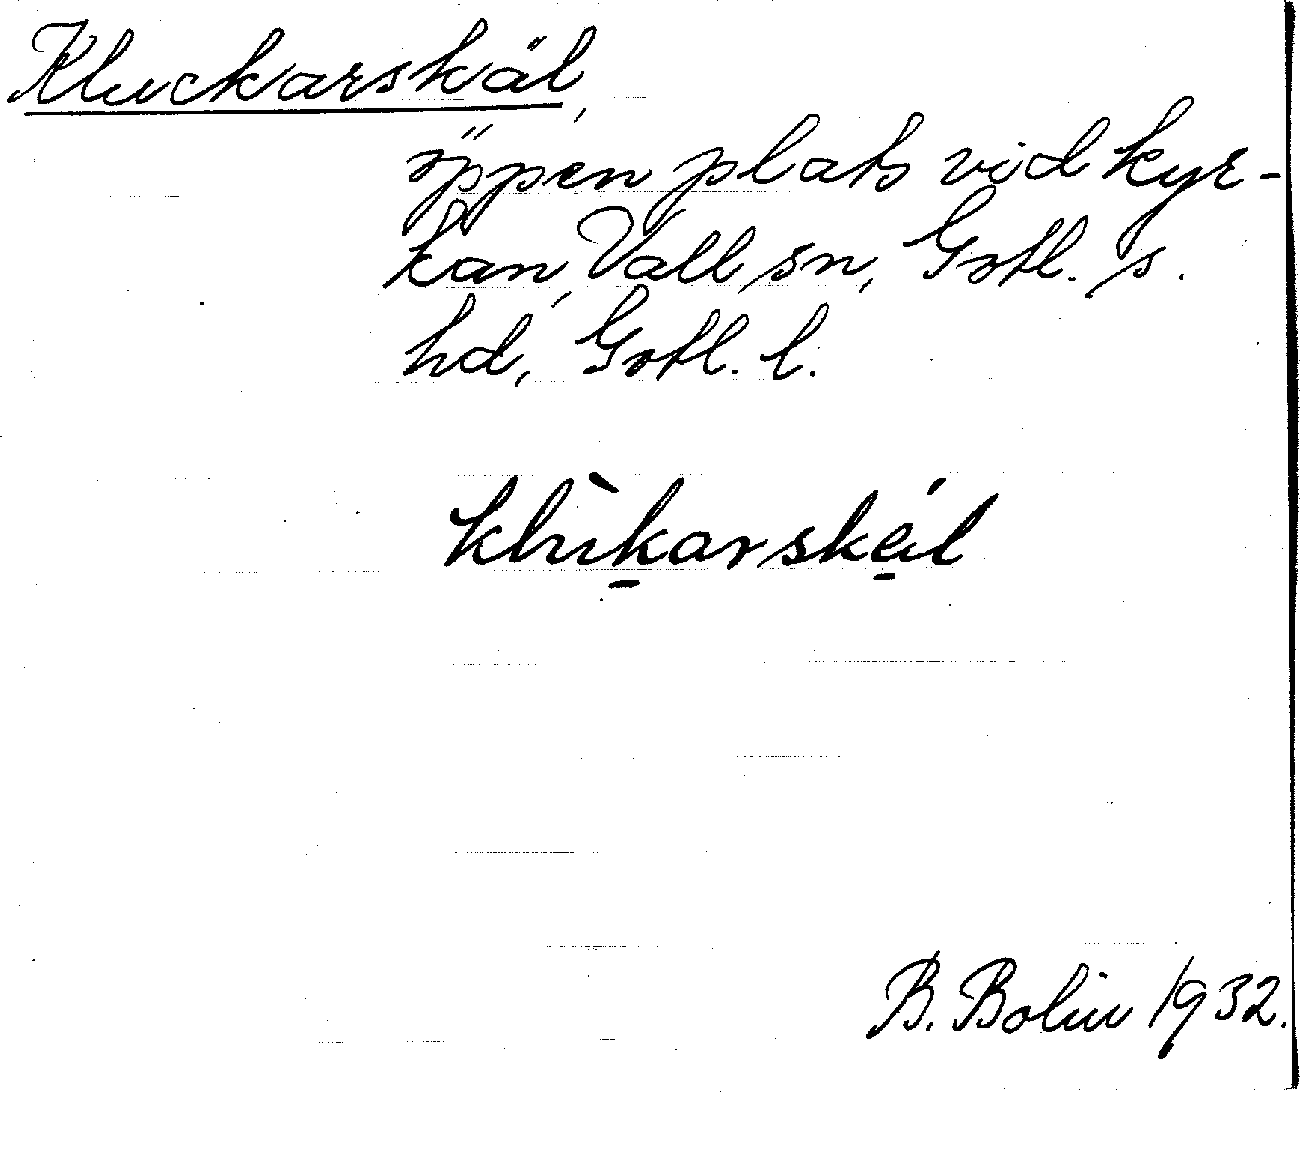 Kluckarskäl,
öppen plats vid kyr-
kan, Vall sn, Gotl. s.
hd, Gotl. l.
klùkarskál
B. Bolin 1932.